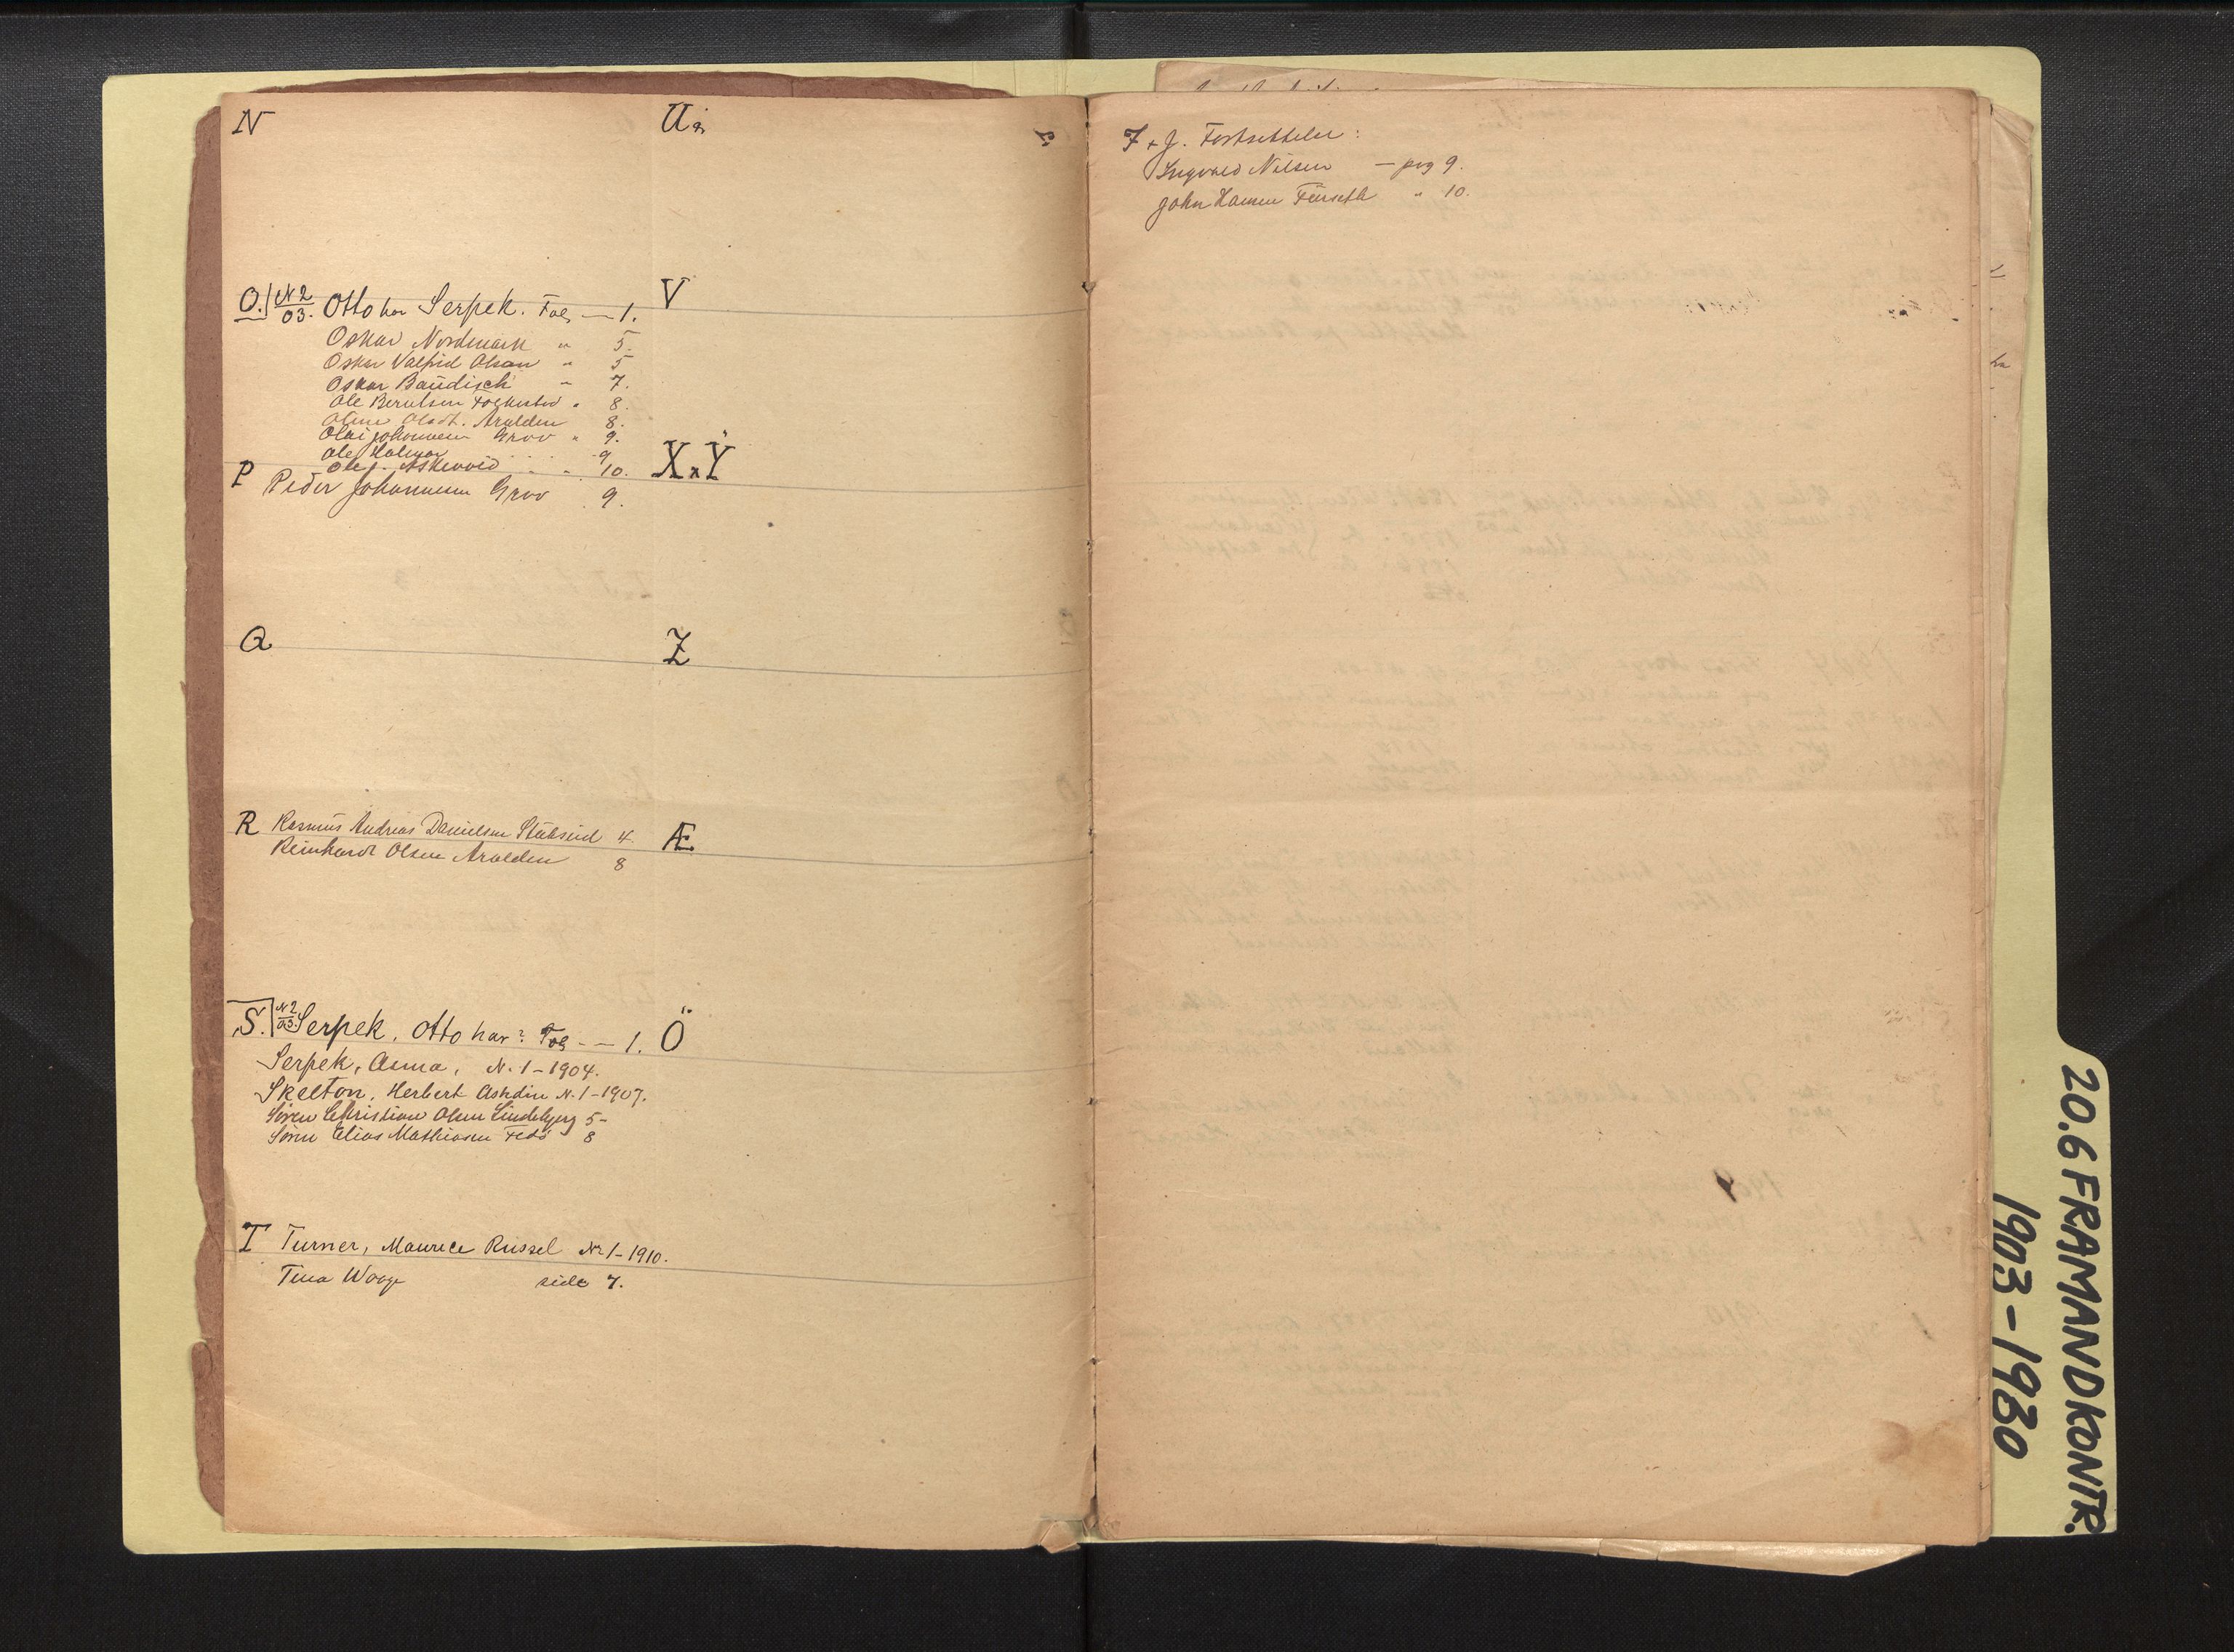 N
O. N2 03. Otto har Serpek. Fol, — 1.
Oskar Nordmark " 5.
Oskar Valfrid Olsan " 5
Oskar Baudisch " 7.
Ole Berntsen " 8.
Aralden 8.
Olai Johannesen Grov " 9.
Ole 9
Ole J. Askevold " 10.
P Peder Johannesen Grov 9.
Q
R Rasmus Andreas Danielsen Stubseid 4.
Reinhardt Olsen Aralden 8
S. N2 03. Serpek, Otto har? Fol — 1.
Serpek, Asma, N. 1-1904.
Skelton, Herbert Ashdin N. 1-1907.
Sören Christian Olsen Lindebjerg 5-
Sören Elias Mathiasen 8
T Turner, Maurice Russel Nr 1-1910.
Tina Waage side 7.
U
V
X Y
Z
Æ
Ö
I + J. Fortsettelse:
Ingvald Nilsen — pag 9.
John Hansen Furseth " 10.
20.6 FRAMANDKONTR.
1903-1930